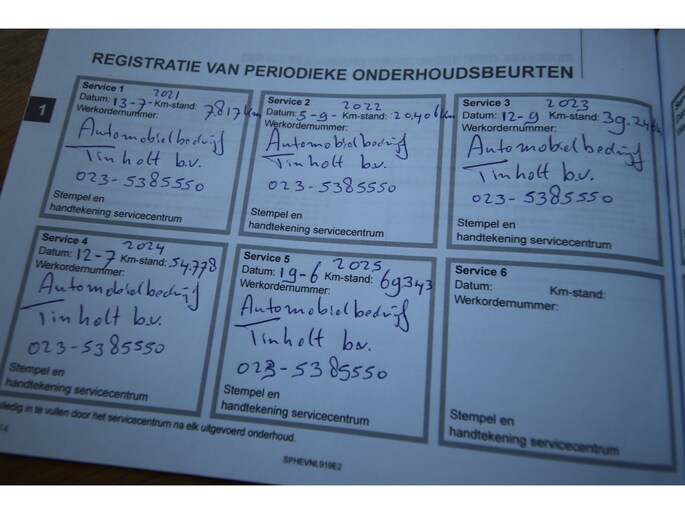 REGISTRATIE VAN PERIODIEKE ONDERHOUDSBEURTEN
1
Service 1
2021
Datum: 13-7- Km-stand: 7817 km
Werkordernummer:
Automobielbedrijf
Tinholt b.v.
023-5385550
Stempel en
handtekening servicecentrum
Service 2
2022
Datum: 5-9- Km-stand: 20.406 km
Werkordernummer:
Automobielbedrijf
Tinholt b.v.
023-5385550
Stempel en
handtekening servicecentrum
Service 3
2023
Datum: 12-9 Km-stand: 39.246
Werkordernummer:
Automobielbedrijf
Tinholt b.v.
023-5385550
Stempel en
handtekening servicecentrum
Service 4
2024
Datum: 12-7 Km-stand: 54.778
Werkordernummer:
Automobielbedrijf
Tinholt b.v.
023-5385550
Stempel en
handtekening servicecentrum
Service 5
2025
Datum: 19-6 Km-stand: 69343
Werkordernummer:
Automobielbedrijf
Tinholt b.v.
023-5385550
Stempel en
handtekening servicecentrum
Service 6
Datum: Km-stand:
Werkordernummer:
Stempel en
handtekening servicecentrum
lledig in te vullen door het servicecentrum na elk uitgevoerd onderhoud.
14
SPHEVNL919E2